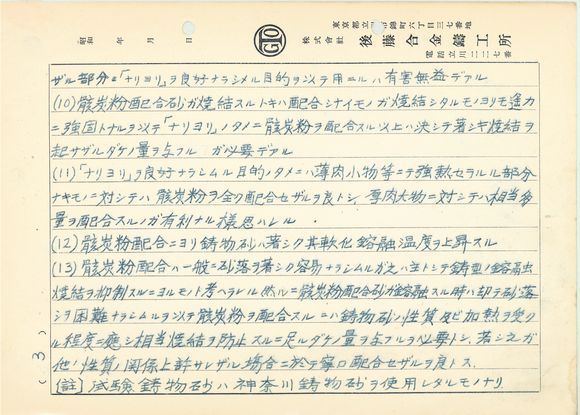 東京都立川市錦町六丁目三七番地
株式會社 後藤合金鑄工所
電話立川二二七番
昭和 年 月 日
GIO
ザル部分ニ「ナリヨリ」ヲ良好ナラシメル目的ヲ以テ用ニルハ有害無益デアル
(10) 骸炭粉配合砂ガ焼結スルトキハ配合シナイモノガ焼結シタルモノヨリモ遙カ
ニ強固トナルヲ以テ「ナリヨリ」ノタメニ骸炭粉ヲ配合スル以上ハ決シテ著シキ焼結ヲ
起サザルダケノ量ヲ与フル ガ必要デアル
(11)「ナリヨリ」ヲ良好ナラシムル目的ノタメニハ薄肉小物等ニテ強熱セラルル部分
ナキモノニ対シテハ骸炭粉ヲ全ク配合セザルヲ良トシ、厚肉大物ニ対シテハ相当多
量ヲ配合スルノガ有利ナル様思ハレル.
(12) 骸炭粉配合ニヨリ鋳物砂ハ著シク其軟化熔融温度ヲ上昇スル
(13) 骸炭粉配合ハ一般ニ砂落ヲ著シク容易ナラシムルガ之ハ主トシテ鋳型ノ熔融
焼結ヲ抑制スルニヨルモノト考ヘラレル然ルニ骸炭粉配合砂ガ熔融スル時ハ却テ砂落
シヲ困難ナラシムルヲ以テ骸炭粉ヲ配合スルニハ鋳物砂ノ性質及ビ加熱ヲ受ク
ル程度ニ應ジ相当焼結ヲ防止スルニ足ルダケノ量ヲ与フルヲ必要トシ、若シ之ガ
他ノ性質ノ関係上許サレザル場合ニ於テ寧ロ配合セザルヲ良トス.
[註] 試験鋳物砂ハ神奈川鋳物砂ヲ使用シタルモノナリ
(3)